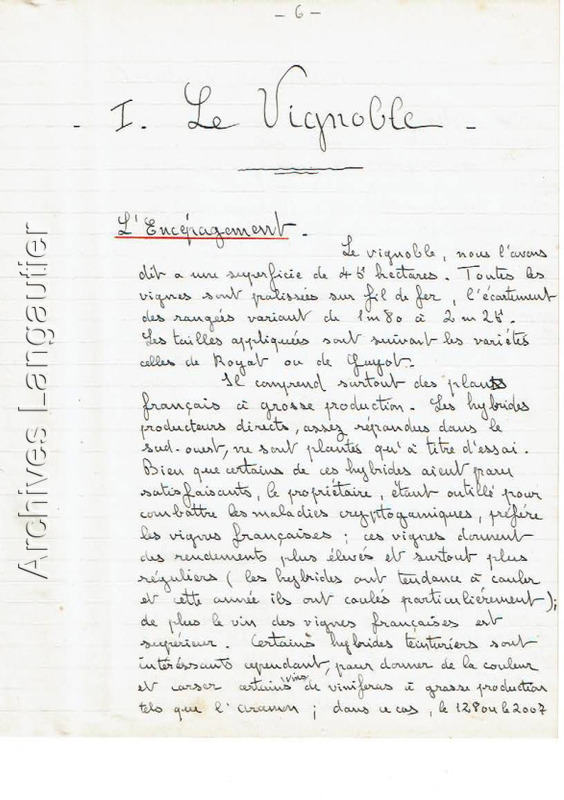 - 6 -
- I. Le Vignoble -
L'Encépagement.
Le vignoble, nous l'avons
dit a une superficie de 45 hectares. Toutes les
vignes sont palissées sur fil de fer, l'écartement
des rangées variant de 1m80 à 2m25.
Les tailles appliquées sont suivant les variétés
celles de Royat ou de Guyot.
Il comprend surtout des plants
français à grosse production. Les hybrides
producteurs directs, assez répandus dans le
sud-ouest, ne sont plantés qu'à titre d'essai.
Bien que certains de ces hybrides aient paru
satisfaisants, le propriétaire, étant outillé pour
combattre les maladies cryptogamiques, préfère
les vignes françaises ; ces vignes donnent
des rendements plus élevés et surtout plus
réguliers (les hybrides ont tendance à couler
et cette année ils ont coulés particulièrement);
de plus le vin des vignes françaises est
supérieur. Certains hybrides teinturiers sont
intéressants cependant, pour donner de la couleur
et corser certains vins de viniferas à grosse production
tels que l'aramon ; dans ce cas, le 128 ou le 2007
Archives Langautier